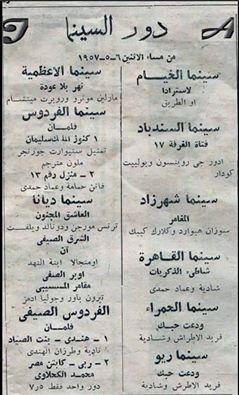 دور السينما
من مساء الاثنين ٦-٥-١٩٥٧
سينما الخيام
لاسترادا
او الطريق
سينما السندباد
فتاة الغرفة ١٧
ادور جي روبنسون وبوليت
كودار
سينما شهرزاد
المقامر
سوزان هيوارد وكلارك كيبك
سينما القاهرة
شاطيء الذكريات
شادية وعماد حمدي
سينما الحمراء
ودعت حبك
فريد الاطرش وشادية
سينما ريو
ودعت حبك
فريد الاطرش وشادية
سينما الاعظمية
نهر بلا عودة
مارلين مونرو وروبرت ميتشام
سينما الفردوس
فلمان
١ كنوز الملك سليمان
تمثيل ستيوارت جورنجر
ملون مترجم
٢ - منزل رقم ١٣
فاتن حمامة وعماد حمدي
سينما ديانا
العاشق المجنون
ترنس مورجن ودونالد ويلفت
الشرق الصيفي
الآن
اونجالا ابنة الهند
اوبر الصفي
مقامر المسسبي
تيرون باور وجوليا ادمز
الفردوس الصيفي
فلمان
١ - هندي - بنت الصياد
نادية وطرزان الهندي
٢ - ربى - كابتن مصر
محمد الكحلاوي
دور واحد فقط ٧٫٥